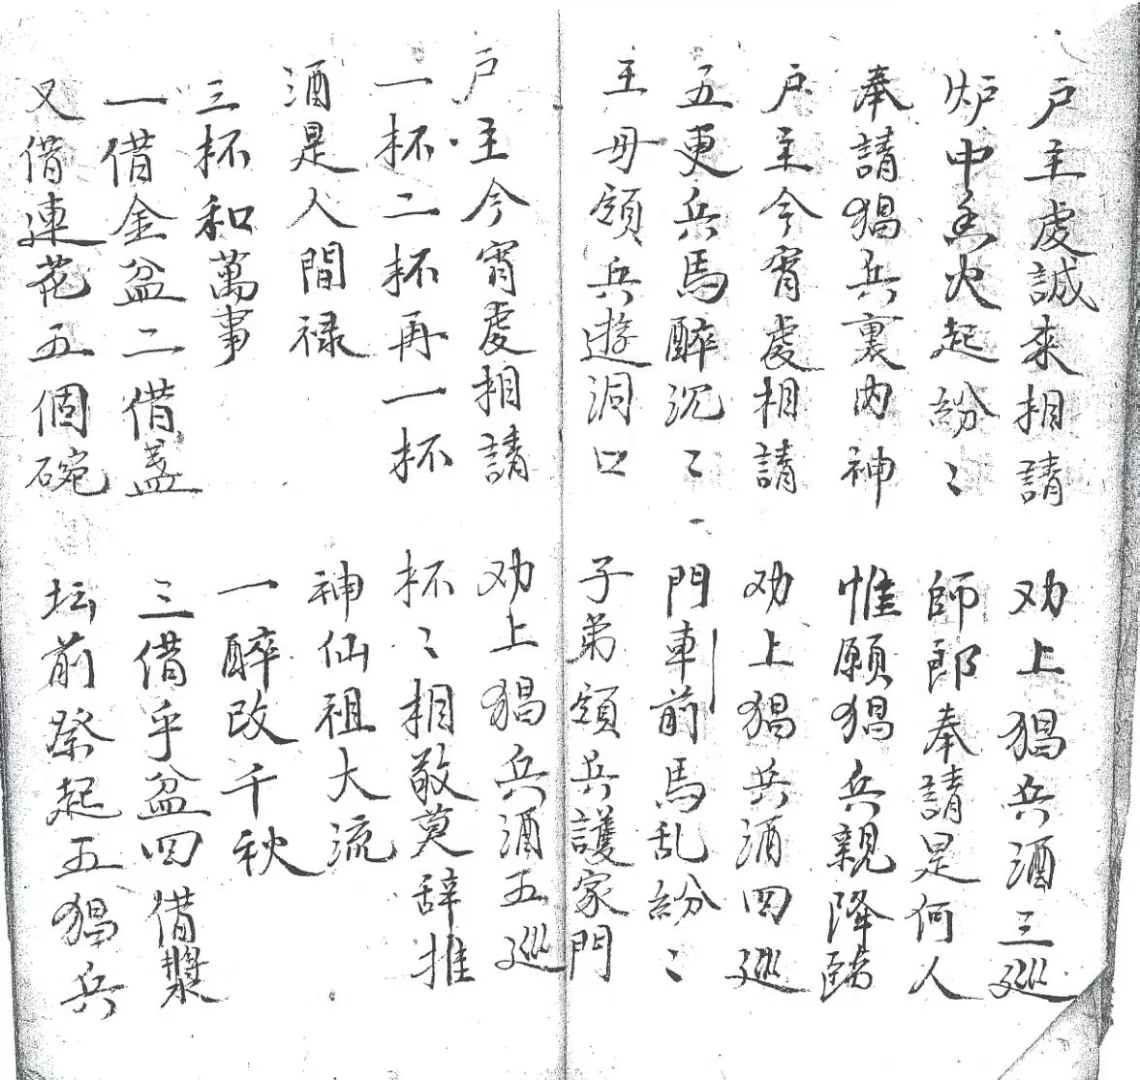 户主虔誠来相請 劝上猖兵酒三巡
炉中香火起紛〻 師郎奉請是何人
奉請猖兵裏内神 惟願猖兵親降臨
户主今宵虔相請 劝上猖兵酒四巡
五更兵馬醉沉〻 門車前馬乱紛〻
王母領兵遊洞口 子弟領兵護家門
户主今宵虔相請 劝上猖兵酒五巡
一杯二杯再一杯 杯〻相敬莫辞推
酒是人間禄 神仙祖大流
三杯和萬事 一醉改千秋
一借金盆二借盖 三借乎盆四借漿
又借連花五個碗 坛前祭起五猖兵